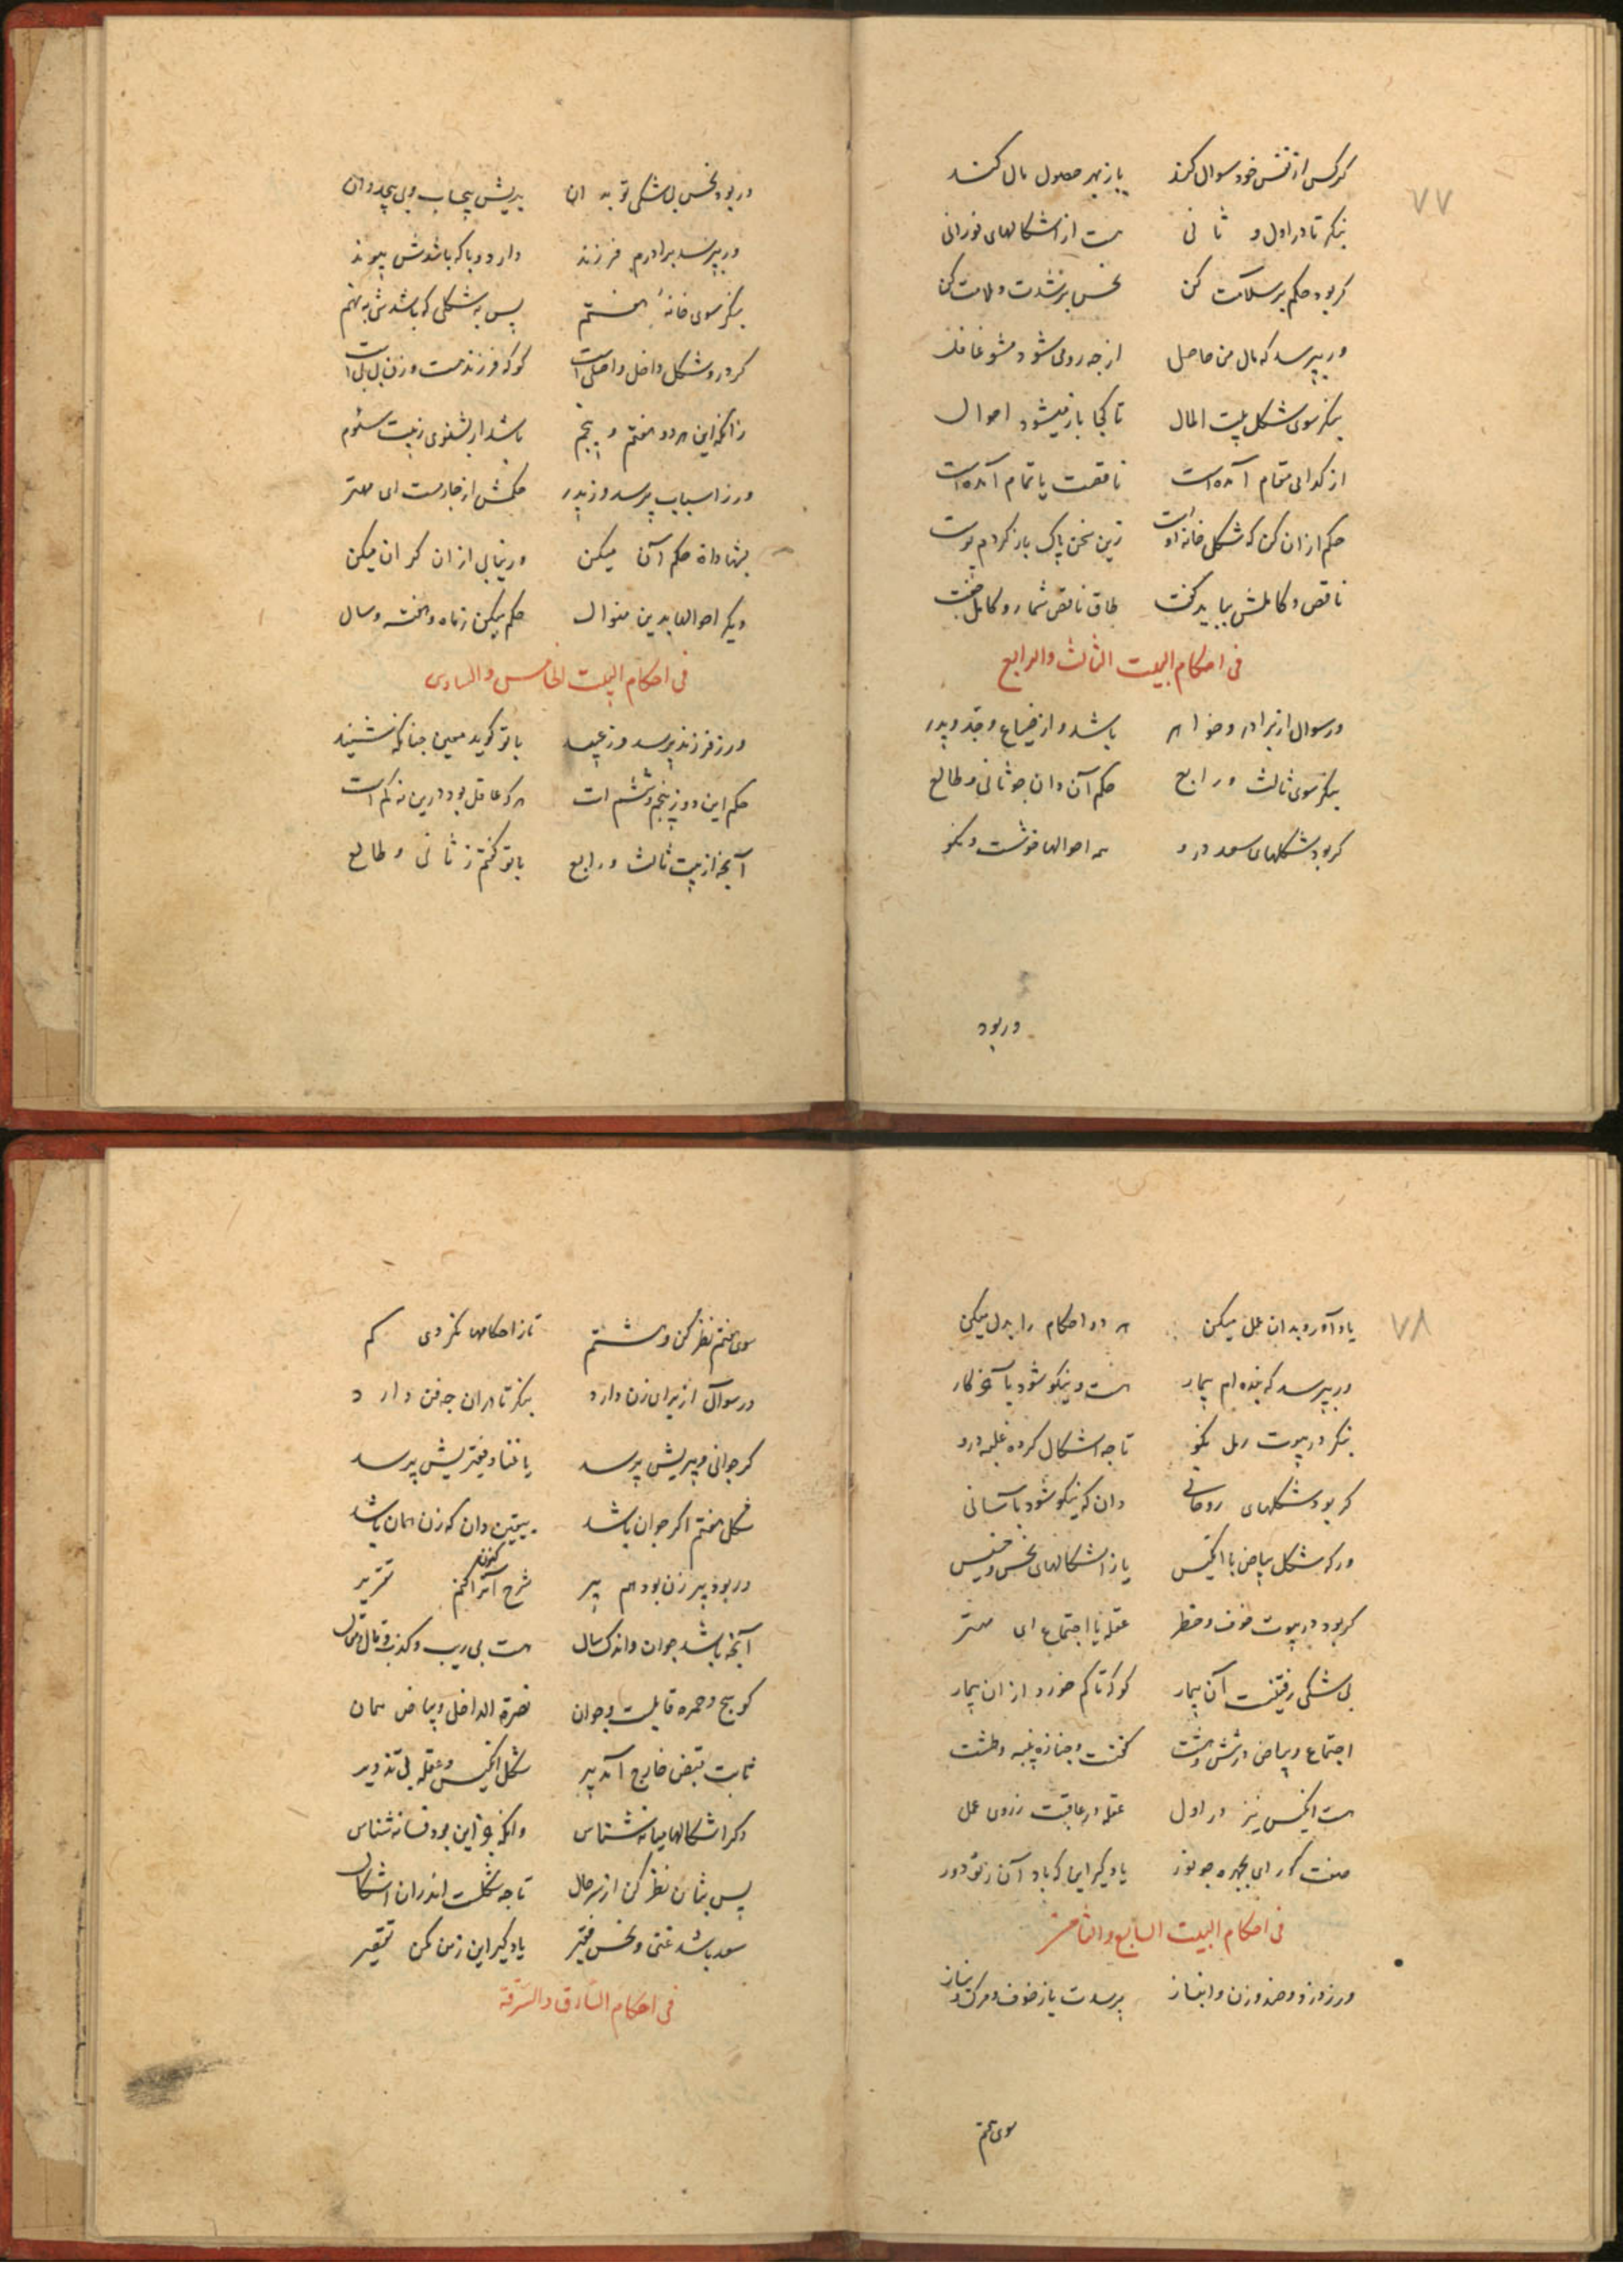 ۷۷
کر کس از نفس خود سوال کند یا ز بهر حصول مال کند
بنکر تا در اول و ثانی هست از اشکالهای نورانی
کر بود حکم بر سلامت کن نحس بر شدت و ملامت کن
ور بپرسد که مال من حاصل از چه رو می شود مشو غافل
بنکر سوی شکل بیت المال تا کجا باز میشود احوال
از کدامی مقام آمده است ناقصت یا تمام آمده است
حکم ازان کن که شکل خانه اوست زین سخن پاک باز کردم پوست
ناقص و کاملش بباید کفت طاق ناقص شمار و کامل جفت
فی احکام البیت الثالث والرابع
ور سوال از برادر و خواهر باشد و از ضیاع و جد و پدر
بنکر سوی ثالث و رابع حکم آن دان چو ثانی و طالع
کر بود شکلهای سعد درو همه احوالها خوشست و نکو
وربود
ور بود نحس بی شکی تو بدان بدیش بیحساب و بی پیچد وان
ور بپرسد برادرم فرزند دارد و با که باشدش پیوند
بنکر سوی خانه هفتم پس به شکلی که باشدش به نهم
کر درو شکل داخل و اصلی است کو که فرزند هست و زن بلی است
زانکه این هر دو هفتم و پنجم باشد ار بشنوی ز بیت سئوم
ور ز اسباب پرسد و ز پدر حکمش از چارمست ای مهتر
بشهادات حکم آن میکن ور نیابی ازان کران میکن
دیکر احوالها بدین منوال حکم میکن ز ماه و هفته و سال
فی احکام البیت الخامس والسادس
ور ز فرزند پرسد و ز عبید با تو کوید معین چنانکه شنید
حکم این دو ز پنجم و ششم است هر که عاقل بود درین نه کم است
آنچه از بیت ثالث و رابع با تو کفتم ز ثانی و طالع
۷۸
یاد آور و بدان عمل میکن هر دو احکام را بدل میکن
ور بپرسد که بنده ام بیمار هست و نیکو شود بآخر کار
بنکر در بیوت رمل نکو تا چه اشکال کرده غلبه درو
کر بود شکلهای روحانی دان که نیکو شود بآسانی
ور که شکل بیاض با انکیس یا ز اشکالهای نحس و خسیس
کر بود در بیوت خوف و خطر عقله یا اجتماع ای مهتر
بی شکی رفتنست آن بیمار کو کرتا کم خورد ازان بیمار
اجتماع و بیاض در شش و هشت کفنست و جنازه پنبه و طشت
هست انکیس نیز در اول عقله در عاقبت ز روی عمل
صفت کور ای بچهره چو نور یاد کیر این که باد آن ز تو دور
فی احکام البیت السابع والثامن
ور ز دزد و ضد و زن و انباز پرسدت یا ز خوف و مرک و نیاز
سوی هفتم
سوی هفتم نظر کن و هشتم تا ز احکامها نکردی کم
ور سوال از برای زن دارد بنکر تا دران چه فن دارد
کر جوانی و پیریش پرسد یا غنا و فقیریش پرسد
شکل هفتم اکر جوان باشد بیقین دان که زن همان باشد
ور بود پیر زن بود هم پیر شرح آنرا کنم کنون تقریر
آنچه باشد جوان و اندک سال هست بی ریب و کذب و قال و مقال
کوسج و حمره قابلست و جوان نصرة الداخل و بیاض همان
ثابت قبض خارج آمد پیر شکل انکیس و عقله بی تزویر
دکر اشکالها میانه شناس وانکه جز این بود فسانه شناس
پس بثامن نظر کن از سر حال تا چه شکلست اندران اشکال
سعد باشد غنی و نحس فقیر یاد کیر این ز من مکن تقصیر
فی احکام السارق والسرقة